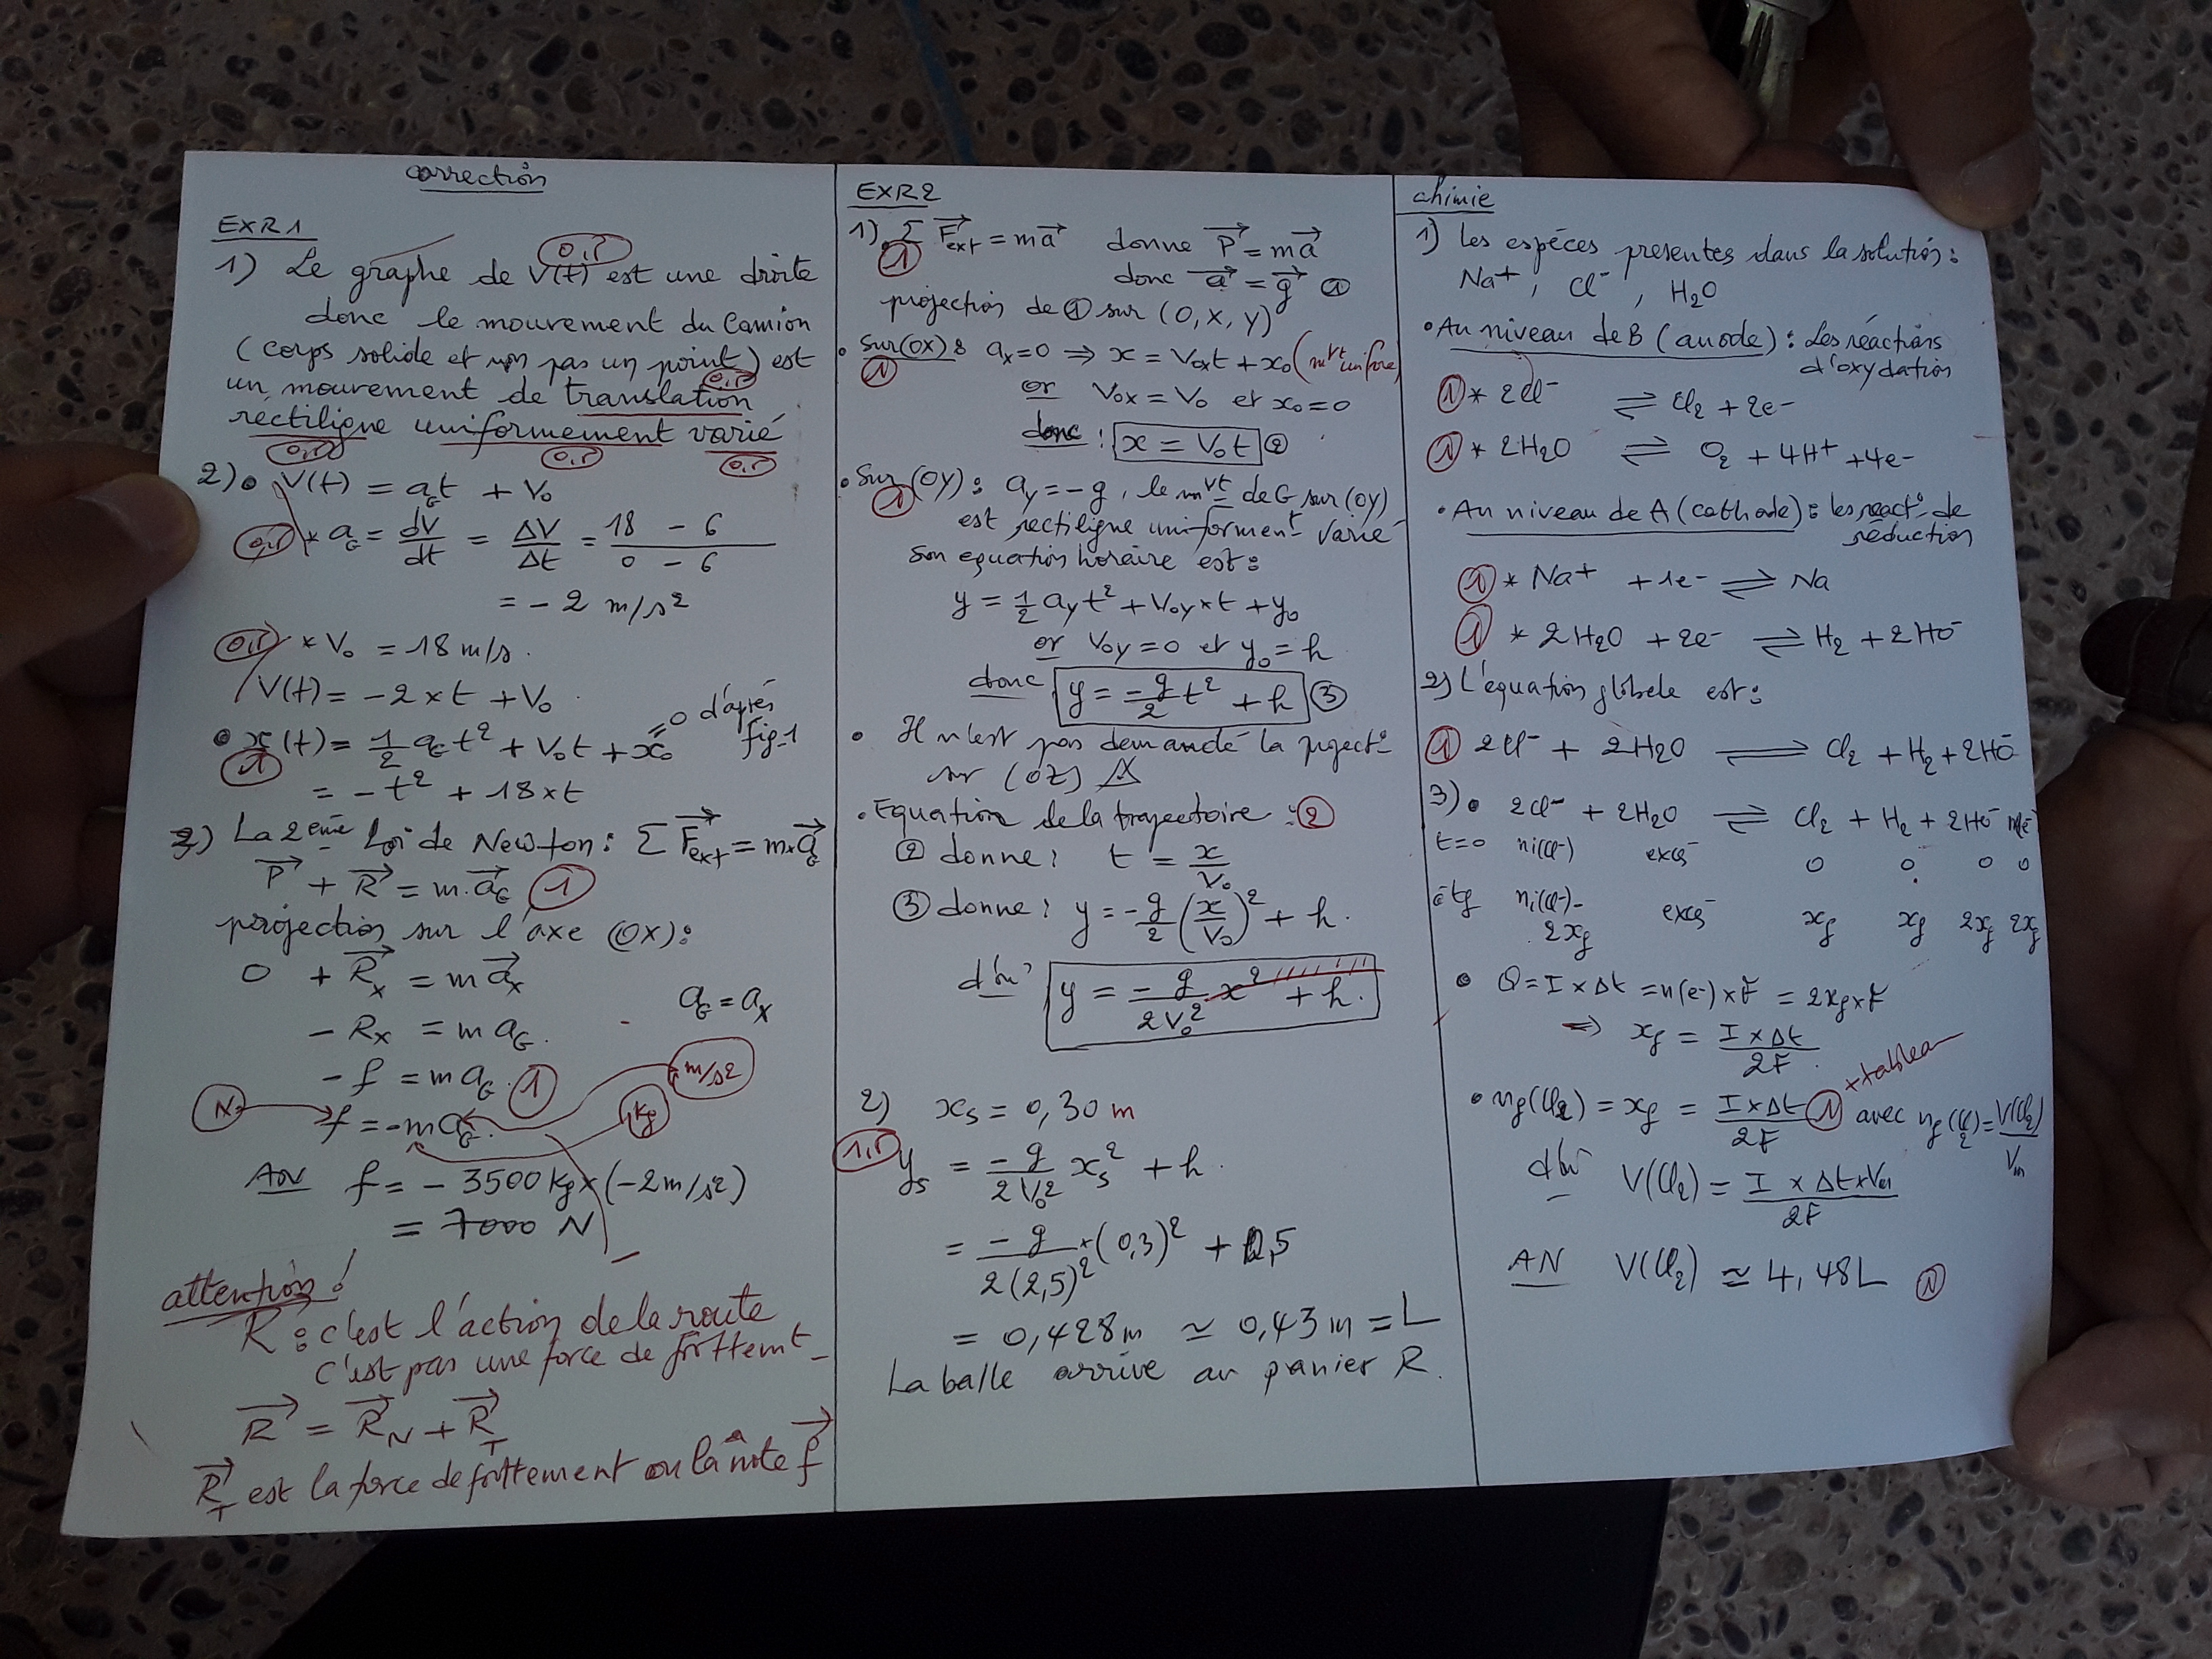 correction
EXR1
0,5
1) Le graphe de V(t) est une droite
donc le mouvement du Camion
(corps solide et non pas un point) est
0,5
un mouvement de translation
rectiligne uniformement varié
0,5 0,5 0,5
2) • V(t) = a_G t + V₀
0,5 * a_G = dV/dt = ΔV/Δt = (18 - 6)/(0 - 6)
= - 2 m/s²
0,5 * V₀ = 18 m/s.
V(t) = -2 × t + V₀
• x(t) = 1/2 a_G t² + V₀t + x₀ =0 d'après fig-1
1
= - t² + 18 × t
3) La 2ème Loi de Newton : Σ F⃗ext = m.a⃗_G
P⃗ + R⃗ = m.a⃗_G 1
projection sur l'axe (OX) :
0 + R⃗x = m a⃗x
a_G = a_x
- Rx = m a_G.
- f = m a_G. 1
m/s²
N
kg
f = -m a_G.
AN f = - 3500 kg × (-2 m/s²)
= 7000 N
attention !
R : c'est l'action de la route
c'est pas une force de frottemt
R⃗ = R⃗_N + R⃗_T
R⃗_T est la force de frottement on la note f⃗
EXR2
1) Σ F⃗ext = m a⃗ donne P⃗ = m a⃗
1
donc a⃗ = g⃗ ①
projection de ① sur (O, X, Y)
• Sur (OX) : a_x = 0 ⇒ x = V₀ₓt + x₀ (mvt uniforme)
1
or V₀x = V₀ et x₀ = 0
donc : x = V₀ t ②
• Sur (OY) : a_y = - g, le mvt de G sur (OY)
1
est rectiligne uniforment varié
Son equation horaire est :
y = 1/2 a_y t² + V₀y × t + y₀
or V₀y = 0 et y₀ = h
donc y = -g/2 t² + h ③
• Il n'est pas demandé la project°
sur (OZ)
• Equation de la trajectoire : 2
② donne : t = x/V₀
③ donne : y = -g/2 (x/V₀)² + h.
d'où y = -g/2V₀² x² + h.
2) x_s = 0,30 m
1,5
y_s = -g/2V₀² x_s² + h.
= -g/2(2,5)² × (0,3)² + 0,5
= 0,428 m ≃ 0,43 m = L
La balle arrive au panier R.
chimie
1) Les espéces presentes dans la solution :
Na⁺, Cl⁻, H₂O
• Au niveau de B (anode) : Les réactions
d'oxydation
1 * 2Cl⁻ ⇌ Cl₂ + 2e⁻
1 * 2H₂O ⇌ O₂ + 4H⁺ + 4e⁻
• Au niveau de A (cathode) : les react° de
réduction
1 * Na⁺ + 1e⁻ ⇌ Na
1 * 2H₂O + 2e⁻ ⇌ H₂ + 2HO⁻
2) L'equation globale est :
1 2Cl⁻ + 2H₂O ⇌ Cl₂ + H₂ + 2HO⁻
3) • 2Cl⁻ + 2H₂O ⇌ Cl₂ + H₂ + 2HO⁻ ne⁻
t=0 ni(Cl⁻) excs 0 0 0 0
à tf ni(Cl⁻)- 2xf excs xf xf 2xf 2xf
• Q = I × Δt = n(e⁻) × F = 2xf × F
⇒ xf = I × Δt / 2F
+ tableau
• nf(Cl₂) = xf = I × Δt / 2F 1 avec nf(Cl₂) = V(Cl₂)/Vm
d'où V(Cl₂) = I × Δt × Vm / 2F
AN V(Cl₂) ≃ 4,48 L 1